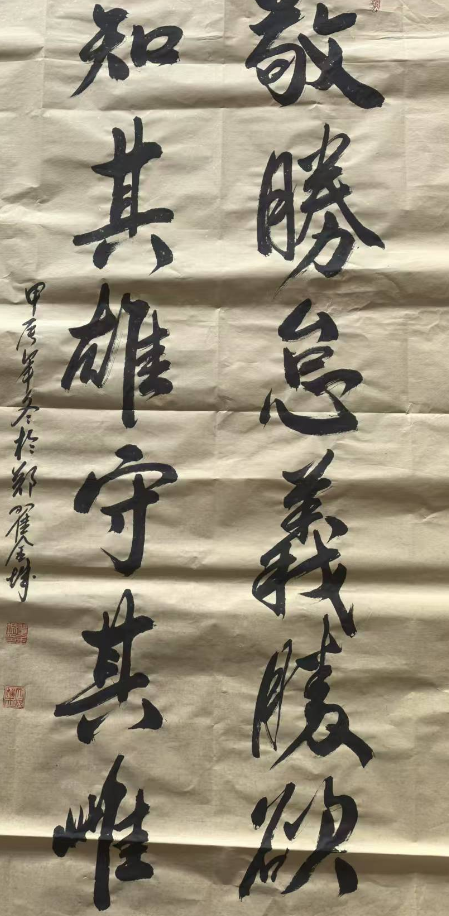 敬勝怠義勝欲
知其雄守其雌
甲辰年冬於鄭翟金城